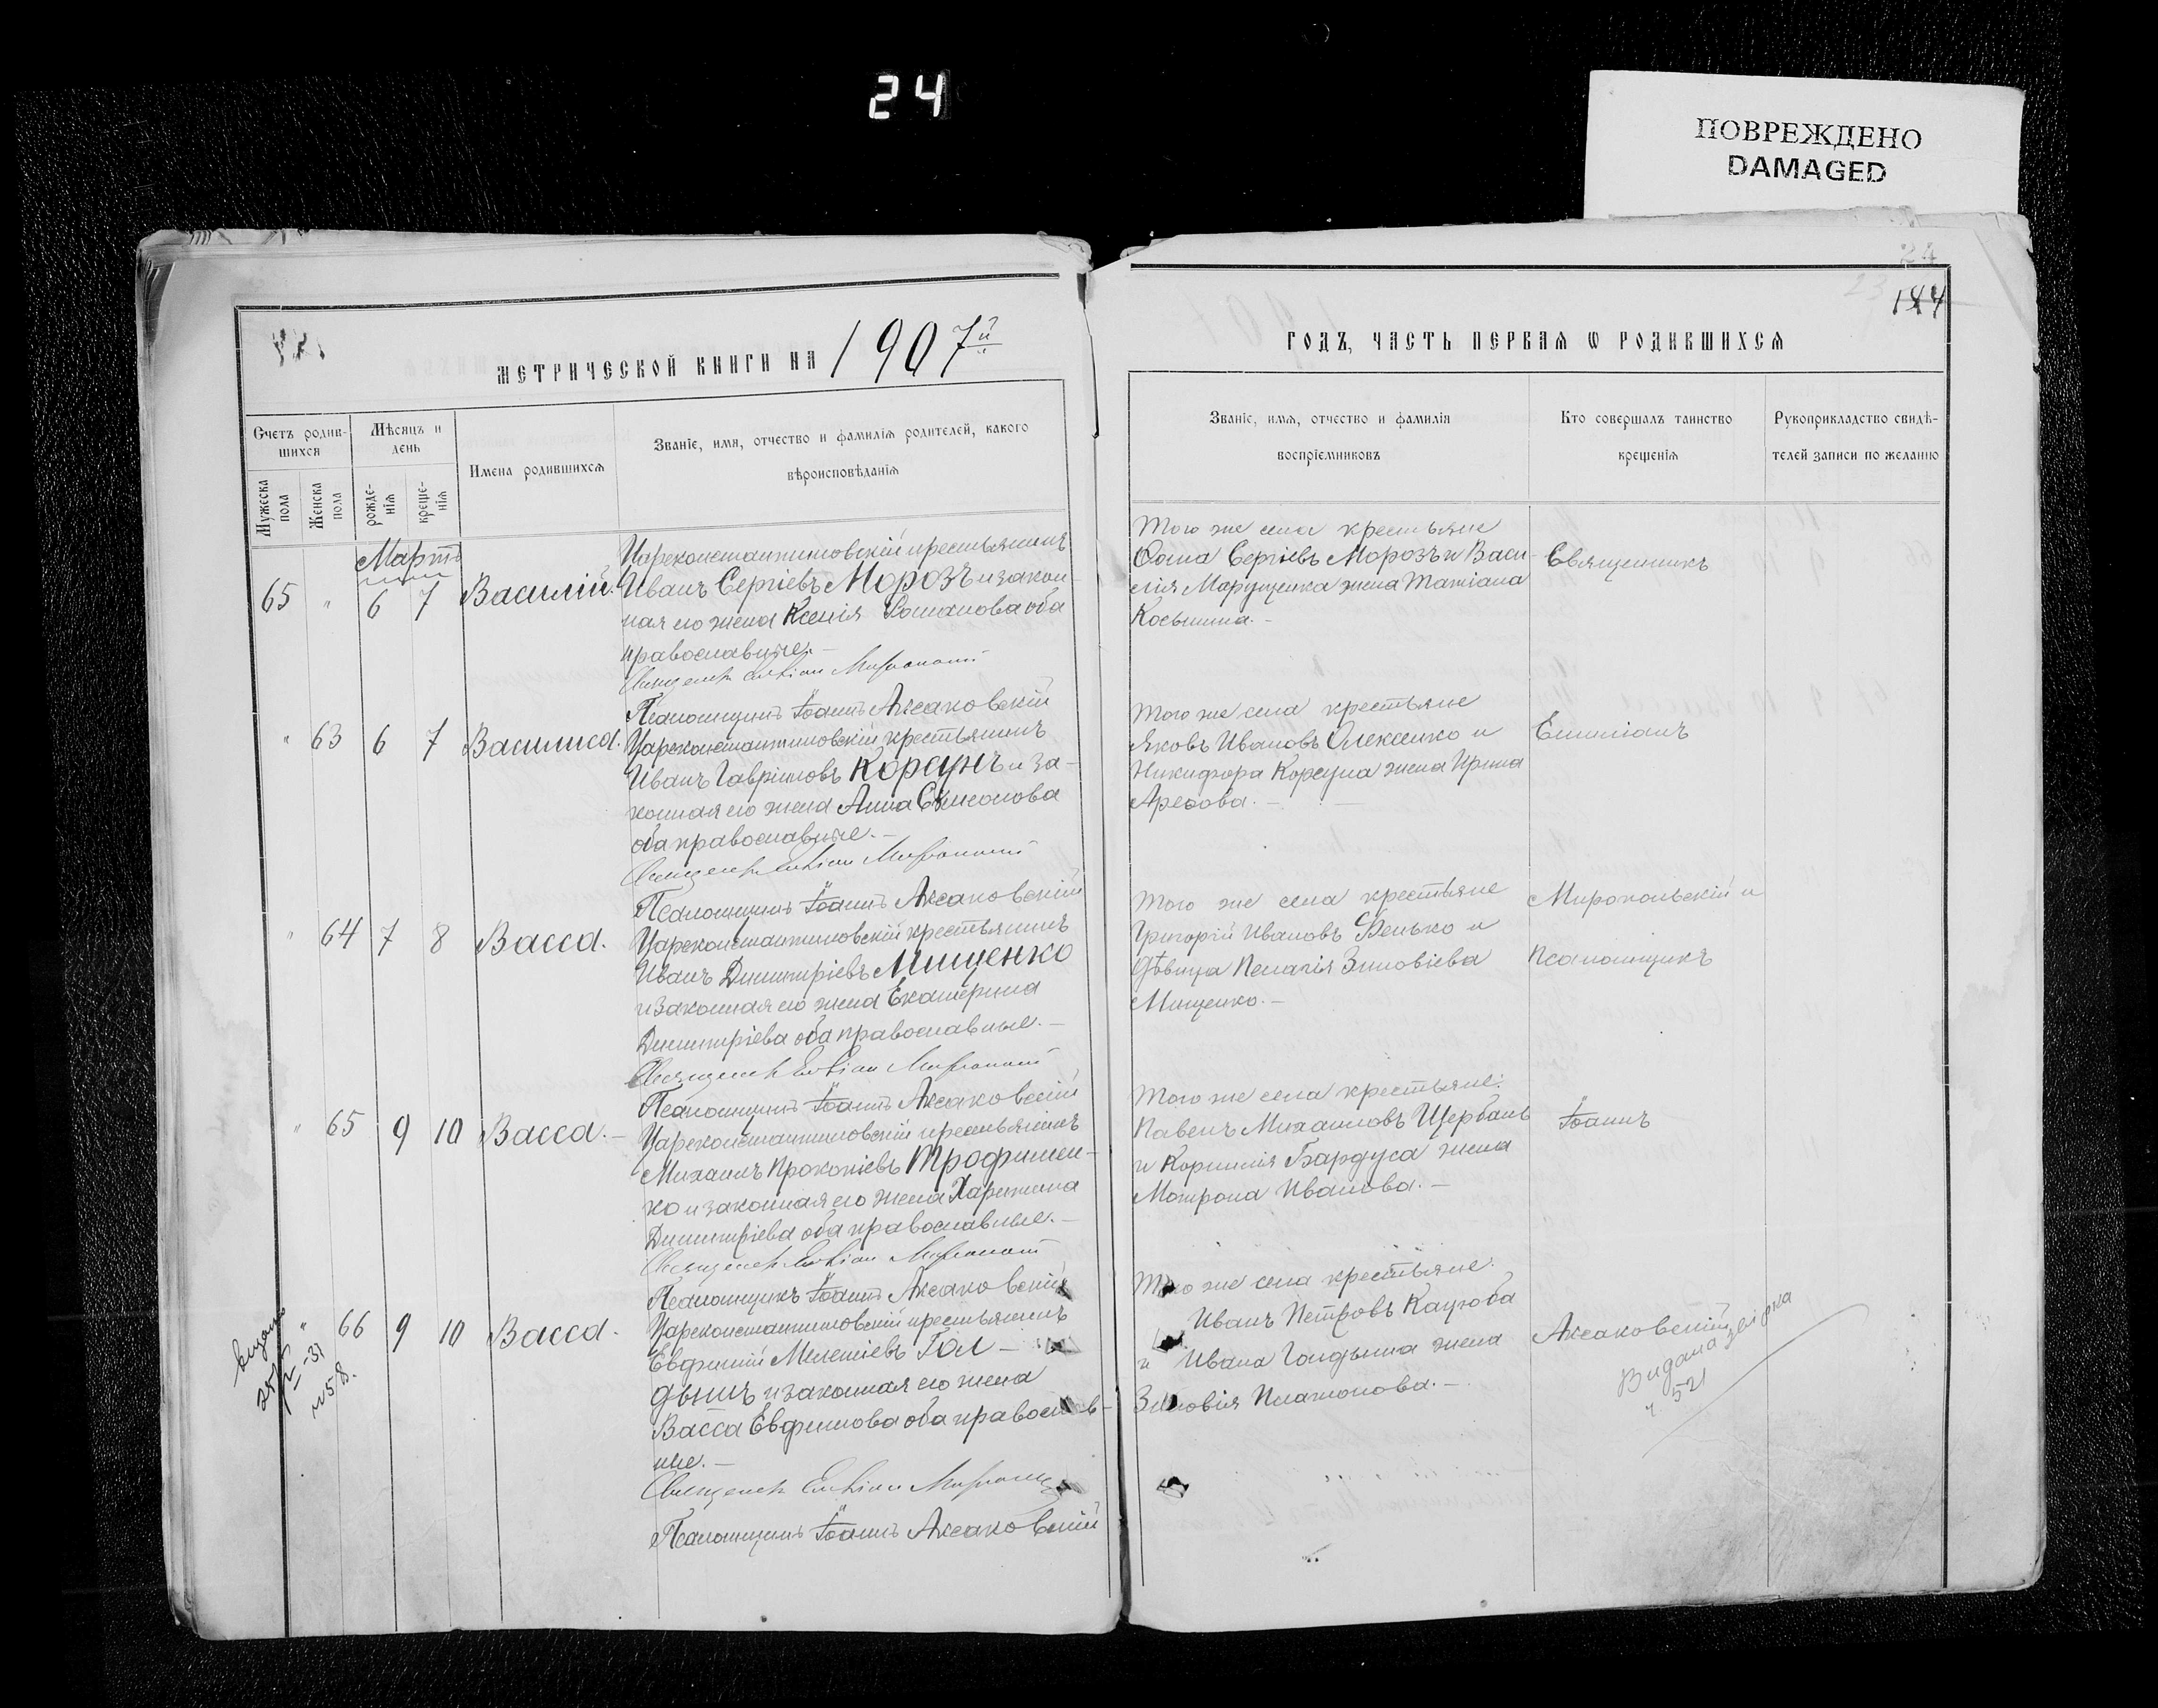 24
ПОВРЕЖДЕНО
DAMAGED
24
23
184
МЕТРИЧЕСКОЙ КНИГИ НА 1907й
ГОДЪ, ЧАСТЬ ПЕРВАЯ Ѡ РОДИВШИХСЯ
Счетъ родив-
шихся
Мѣсяцъ и
день
Имена родившихся
Званіе, имя, отчество и фамилія родителей, какого
вѣроисповѣданія
Мужеска
пола
Женска
пола
рожде-
нія
креще-
нія
Званіе, имя, отчество и фамилія
воспріемниковъ
Кто совершалъ таинство
крещенія
Рукоприкладство свидѣ-
телей записи по желанію
Мартъ
65 " 6 7 Василій.
Цареконстантиновскій крестьянинъ
Иванъ Сергіевъ Морозъ и закон-
ная его жена Ксенія Романова оба
православные.-
Священникъ
Псаломщикъ Іоаннъ Аксаковскій
Того же села крестьяне
Ѳома Сергіевъ Морозъ и Васи-
лія Марущенка жена Татіана
Косьмина.-
Священникъ
" 63 6 7 Василиса.
Цареконстантиновскій крестьянинъ
Иванъ Гавріиловъ Корсунъ и за-
конная его жена Анна Симонова
оба православные.-
Священникъ
Псаломщикъ Іоаннъ Аксаковскій
Того же села крестьяне
Яковъ Ивановъ Олексенко и
Никифора Корсуна жена Ирина
Арефова.-
Емиліанъ
" 64 7 8 Васса.
Цареконстантиновскій крестьянинъ
Иванъ Димитріевъ Мищенко
и законная его жена Екатерина
Димитріева оба православные.-
Священникъ
Псаломщикъ Іоаннъ Аксаковскій
Того же села крестьяне
Григорій Ивановъ Сѣенько и
дѣвица Пелагія Зиновіева
Мищенко.-
Миропольскій и
Псаломщикъ
" 65 9 10 Васса.-
Цареконстантиновскій крестьянинъ
Михаилъ Прокопіевъ Трофимен-
ко и законная его жена Харитина
Димитріева оба православные.-
Священникъ
Псаломщикъ Іоаннъ Аксаковскій
Того же села крестьяне:
Павелъ Михаиловъ Щербань
и Корнилія Бардуса жена
Матрона Иванова.-
Іоаннъ
" 66 9 10 Васса.
Цареконстантиновскій крестьянинъ
Евфимій Мелетіевъ Гол-
дынъ и законная его жена
Васса Евфимова оба православ-
ные.-
Священникъ
Псаломщикъ Іоаннъ Аксаковскій
Того же села крестьяне:
Иванъ Петровъ Кацюба
и Ивана Голдына жена
Зиновія Платонова.-
Аксаковскій
Видана
ч 521
-31
№58.